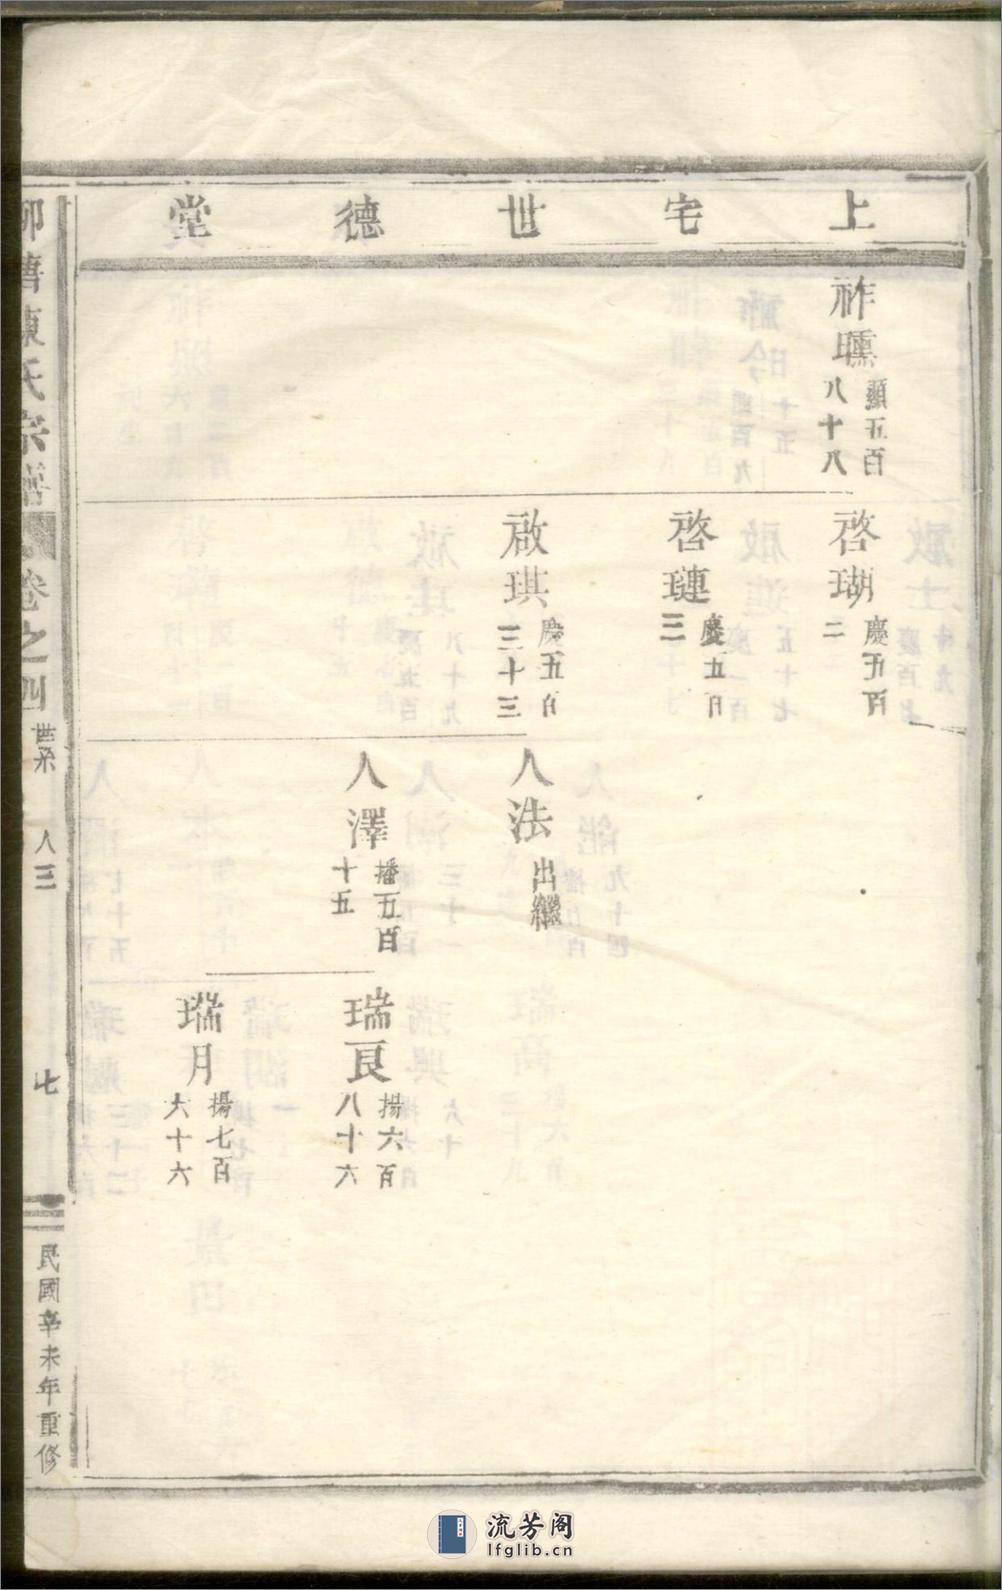 上宅世德堂
祚曛
顯五百
八十八
啓瑚
慶五百
二
啓璉
慶五百
三
啟琪
慶五百
三十三
人法
出繼
人澤
播五百
十五
瑞良
揚六百
八十六
瑞月
揚七百
六十六
陳氏宗譜
卷之四
世系
人三
七
民國辛未年重修
流芳阁
lfglib.cn